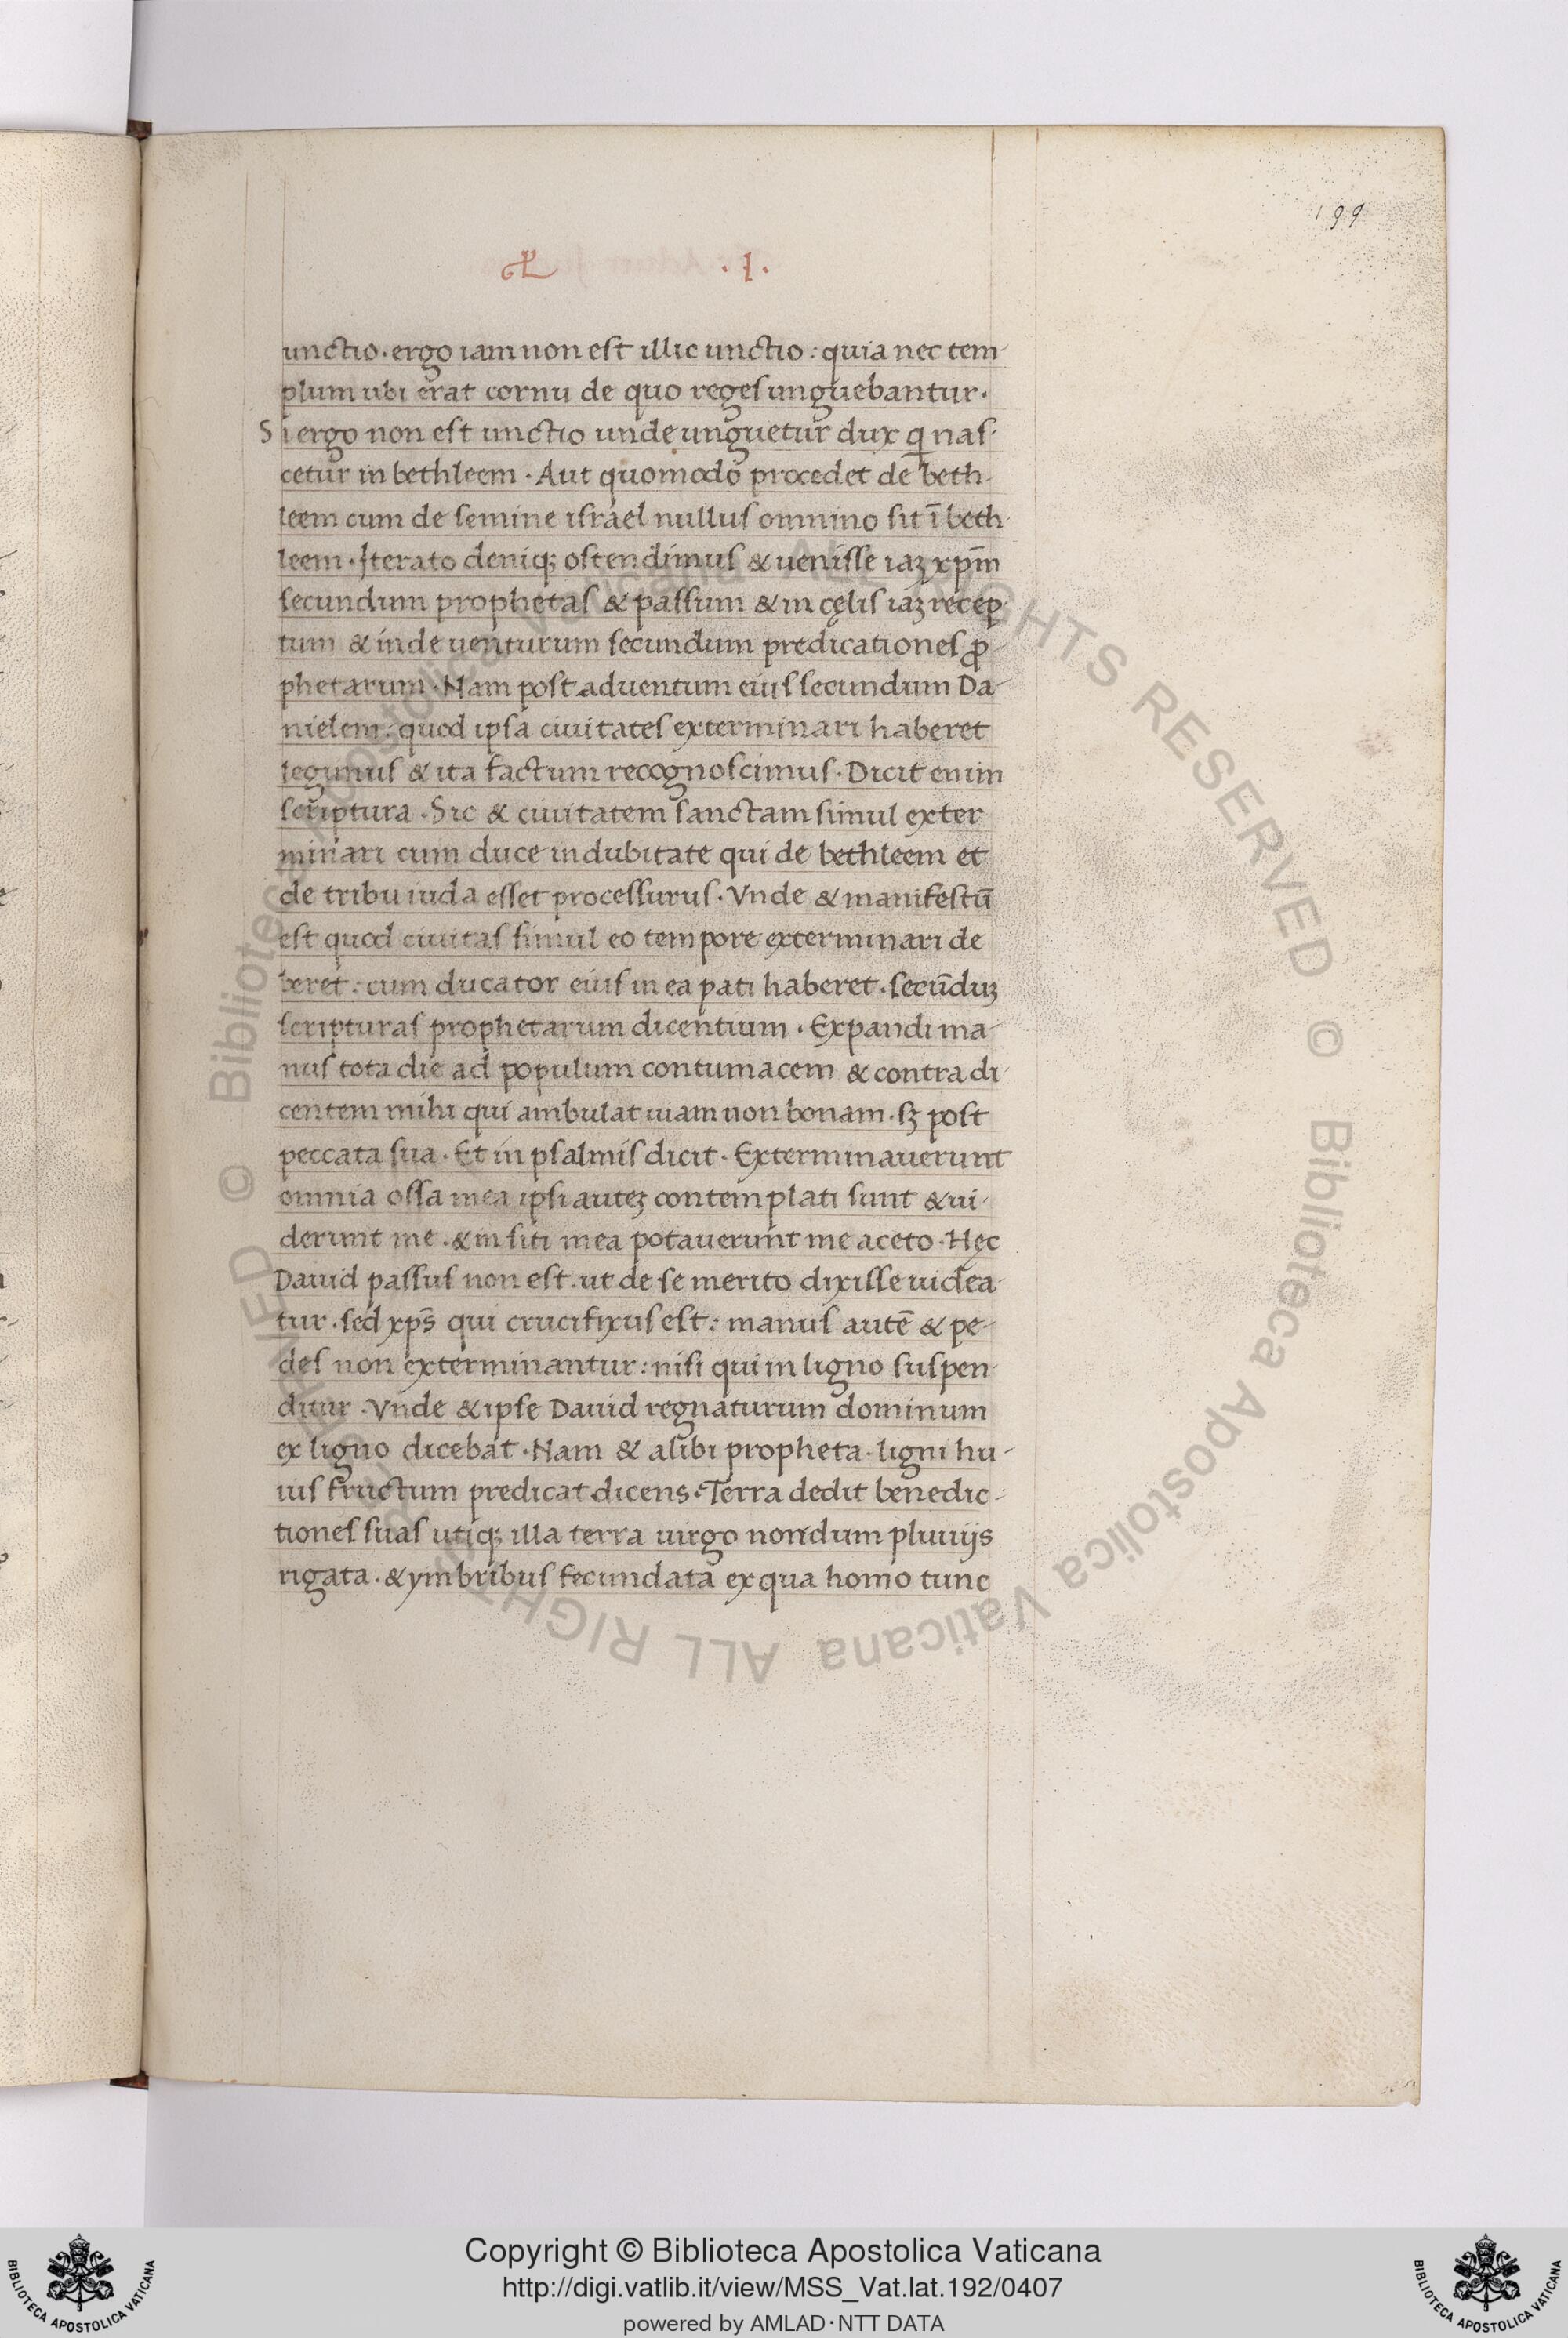 199
.I.
unctio· ergo iam non est illic unctio: quia nec tem-
plum ubi erat cornu de quo reges unguebantur·
Si ergo non est unctio unde unguetur dux q̄ nas-
cetur in bethleem · Aut quomodo procedet de beth-
leem cum de semine israel nullus omnino sit ī beth-
leem · Iterato deniq; ostendimus & uenisse iaꝫ xp̄m
secundum prophetas & passum & in cęlis iaꝫ recep
tum & inde uenturum secundum predicationes ꝓ-
phetarum · Nam post aduentum eius secundum Da-
nielem: quod ipsa ciuitates exterminari haberet
legimus & ita factum recognoscimus · Dicit enim
scriptura · Sic & ciuitatem sanctam simul exter
minari cum duce indubitate qui de bethleem et
de tribu iuda esset processurus · Vnde & manifestū
est quod ciuitas simul eo tempore exterminari de
beret: cum ducator eius in ea pati haberet · secūduꝫ
scripturas prophetarum dicentium · Expandi ma-
nus tota die ad populum contumacem & contradi-
centem mihi qui ambulat uiam non bonam · sꝫ post
peccata sua · Et in psalmis dicit · Exterminauerunt
omnia ossa mea ipsi auteꝫ contemplati sunt & ui-
derunt me · & in siti mea potauerunt me aceto · Hęc
Dauid passus non est · ut de se merito dixisse uidea-
tur · sed xp̄s qui crucifixus est: manus autē & pe-
des non exterminantur: nisi qui in ligno suspen-
ditur · Vnde & ipse Dauid regnaturum dominum
ex ligno dicebat · Nam & alibi propheta · ligni hu-
ius fructum predicat dicens · Terra dedit benedic-
tiones suas utiq; illa terra uirgo nondum pluuijs
rigata · & ymbribus fecundata ex qua homo tunc
© Biblioteca Apostolica Vaticana ALL RIGHTS RESERVED © Biblioteca Apostolica Vaticana ALL RIGHTS RESERVED
Copyright © Biblioteca Apostolica Vaticana
http://digi.vatlib.it/view/MSS_Vat.lat.192/0407
powered by AMLAD·NTT DATA
BIBLIOTECA APOSTOLICA VATICANA
BIBLIOTECA APOSTOLICA VATICANA